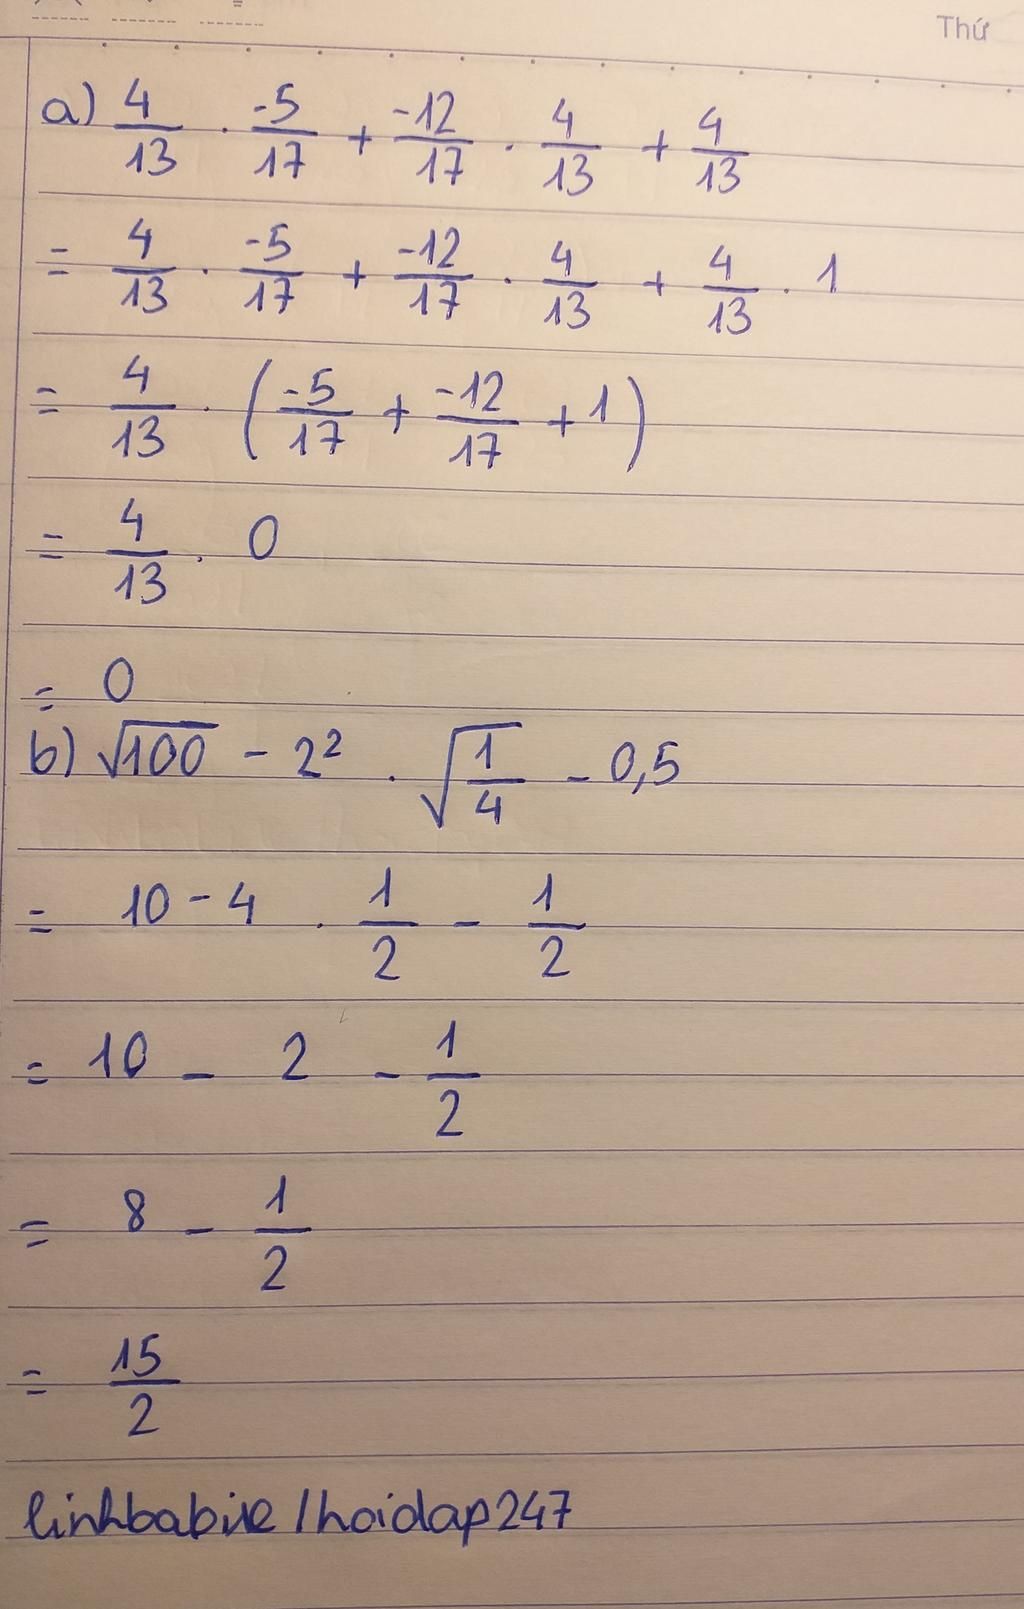 Thứ
a) 4/13 . -5/17 + -12/17 . 4/13 + 4/13
= 4/13 . -5/17 + -12/17 . 4/13 + 4/13 . 1
= 4/13 . (-5/17 + -12/17 + 1)
= 4/13 . 0
= 0
b) √100 - 2² . √(1/4) - 0,5
= 10 - 4 . 1/2 - 1/2
= 10 - 2 - 1/2
= 8 - 1/2
= 15/2
linhbabie/hoidap247